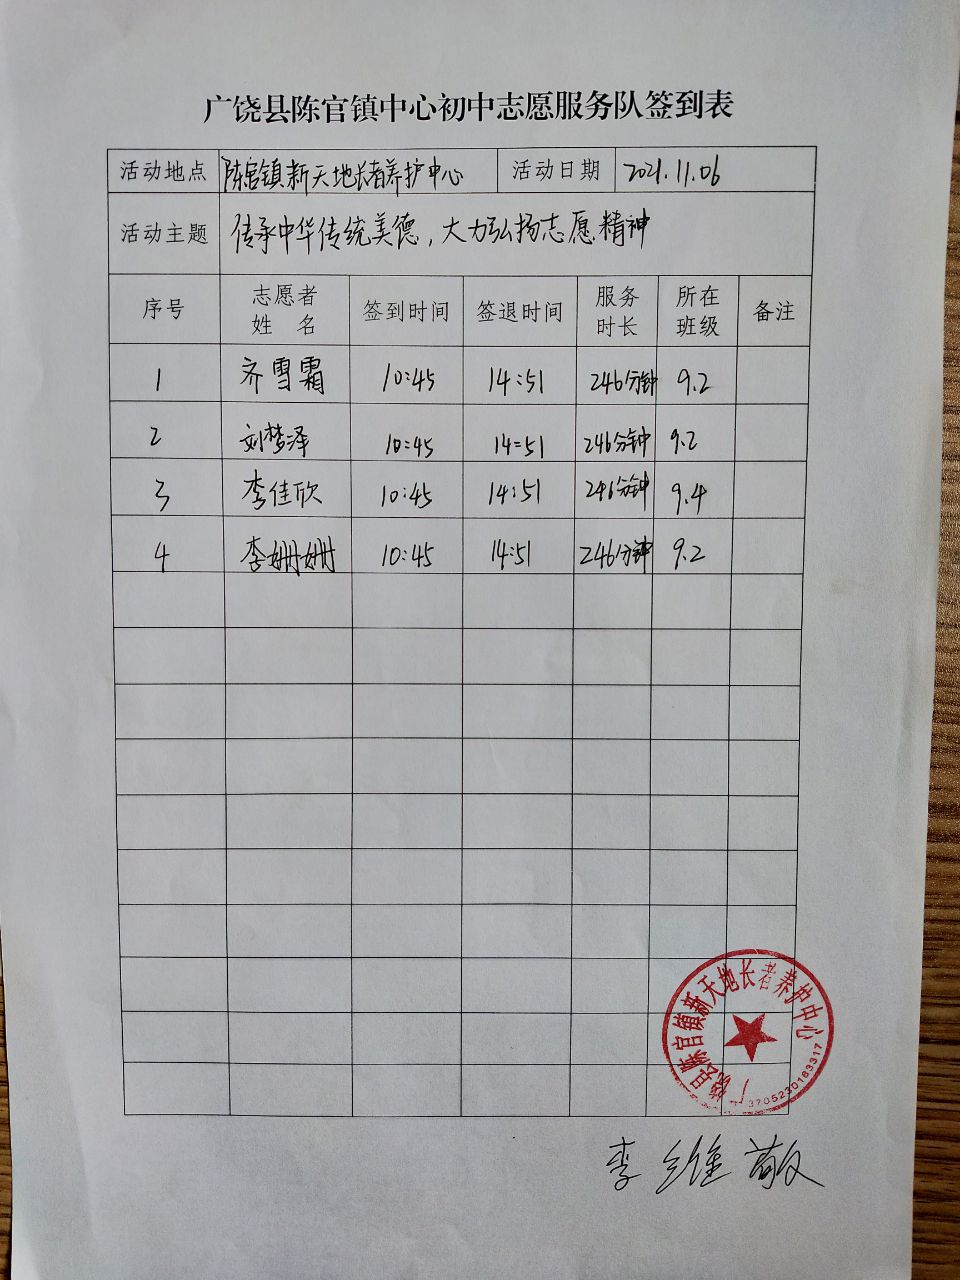 广饶县陈官镇中心初中志愿服务队签到表
活动地点 陈官镇新天地长者养护中心 活动日期 2021.11.06
活动主题 传承中华传统美德，大力弘扬志愿精神
序号 志愿者姓 名 签到时间 签退时间 服务时长 所在班级 备注
1 齐雪霜 10:45 14:51 246分钟 9.2
2 刘梦泽 10:45 14:51 246分钟 9.2
3 李佳欣 10:45 14:51 246分钟 9.4
4 李姗姗 10:45 14:51 246分钟 9.2
广饶县陈官镇新天地长者养护中心
3705230183317
李维敬